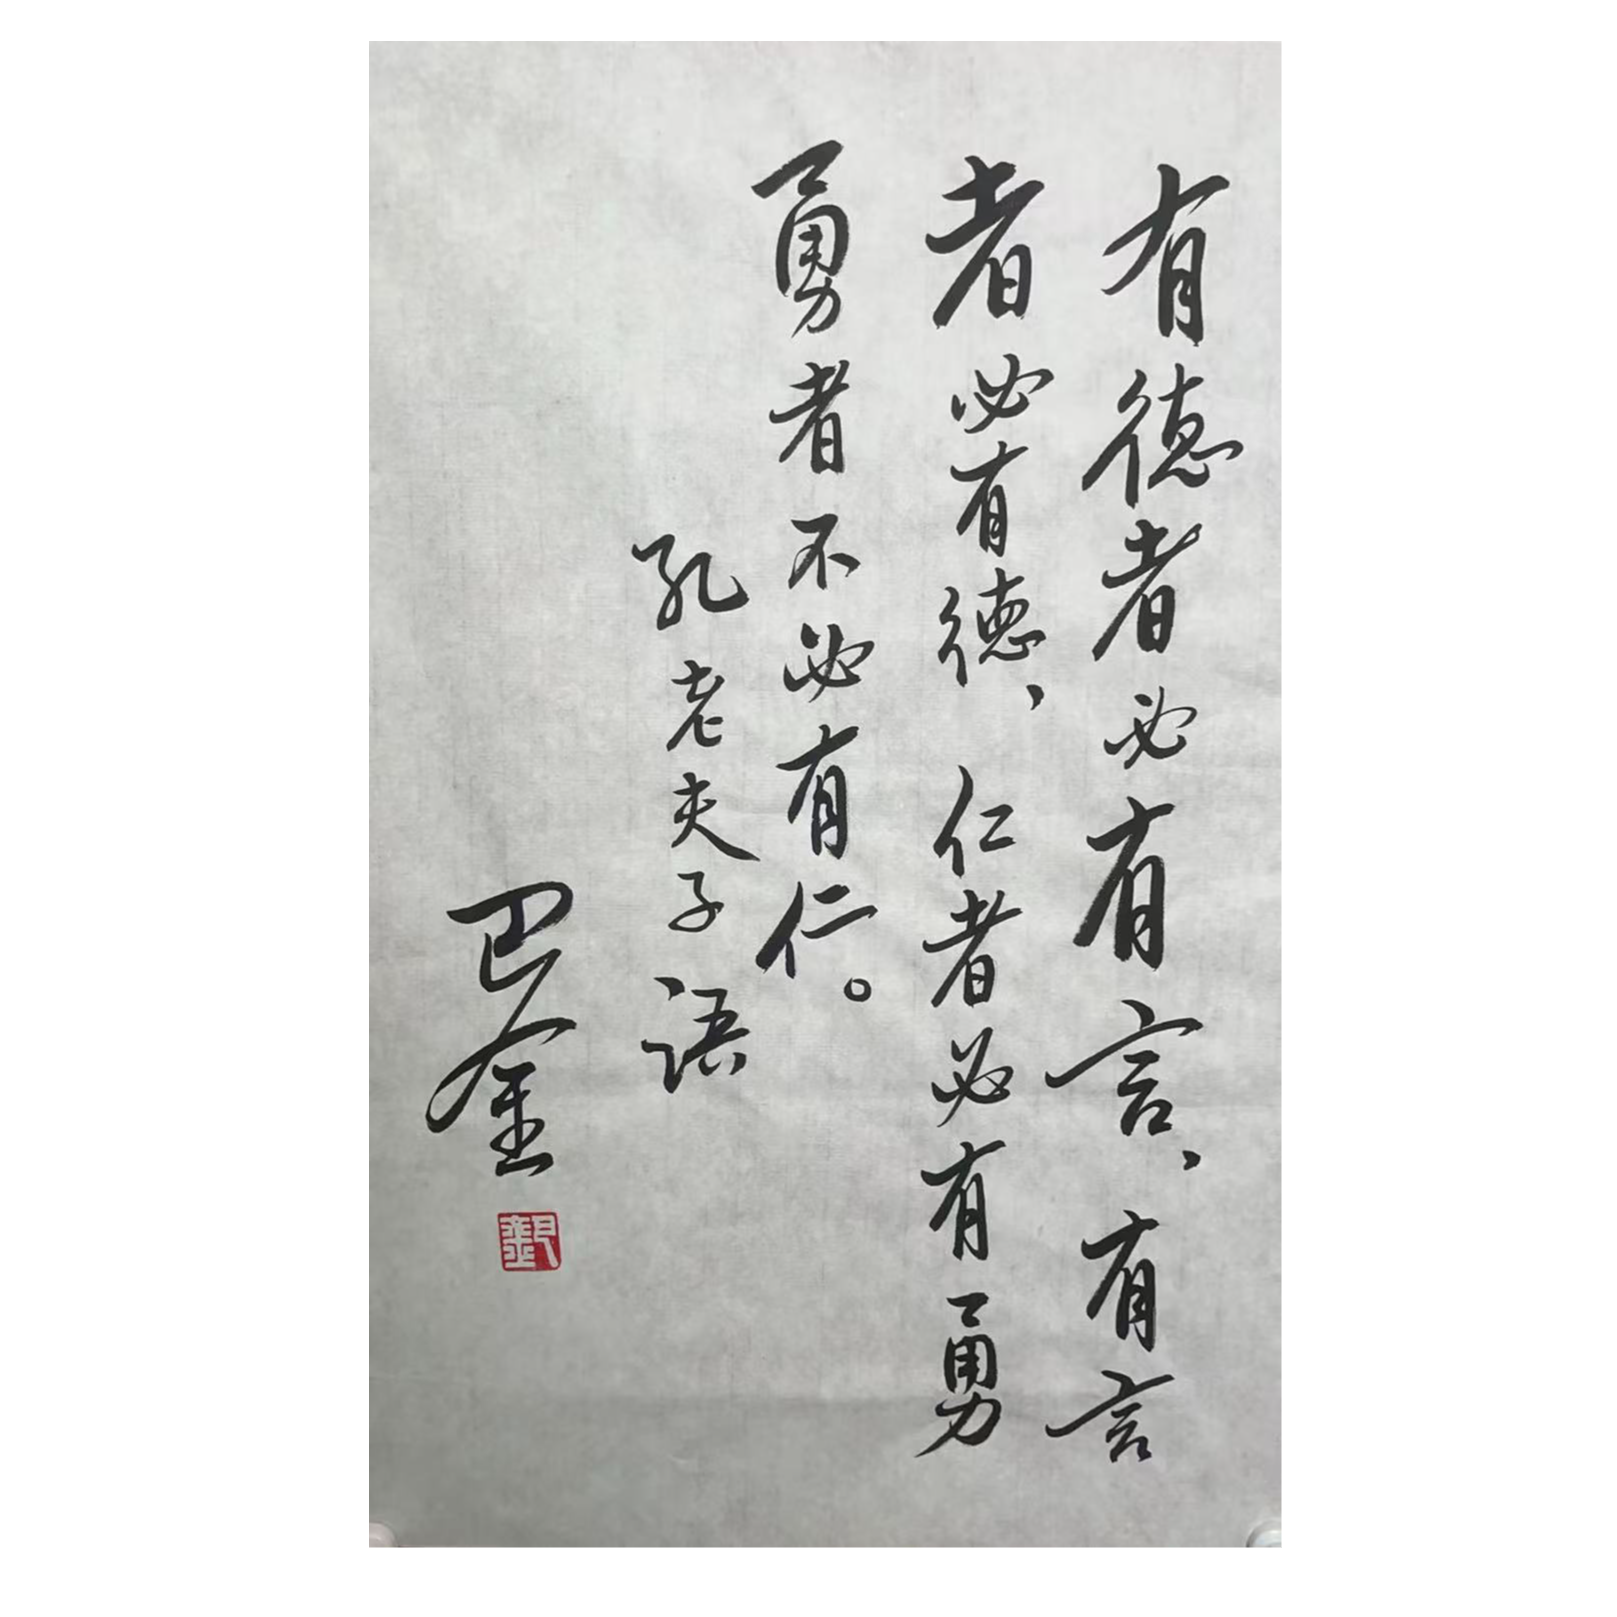 有德者必有言、有言
者必有德、仁者必有勇
勇者不必有仁。
孔老夫子语
巴金
巴金